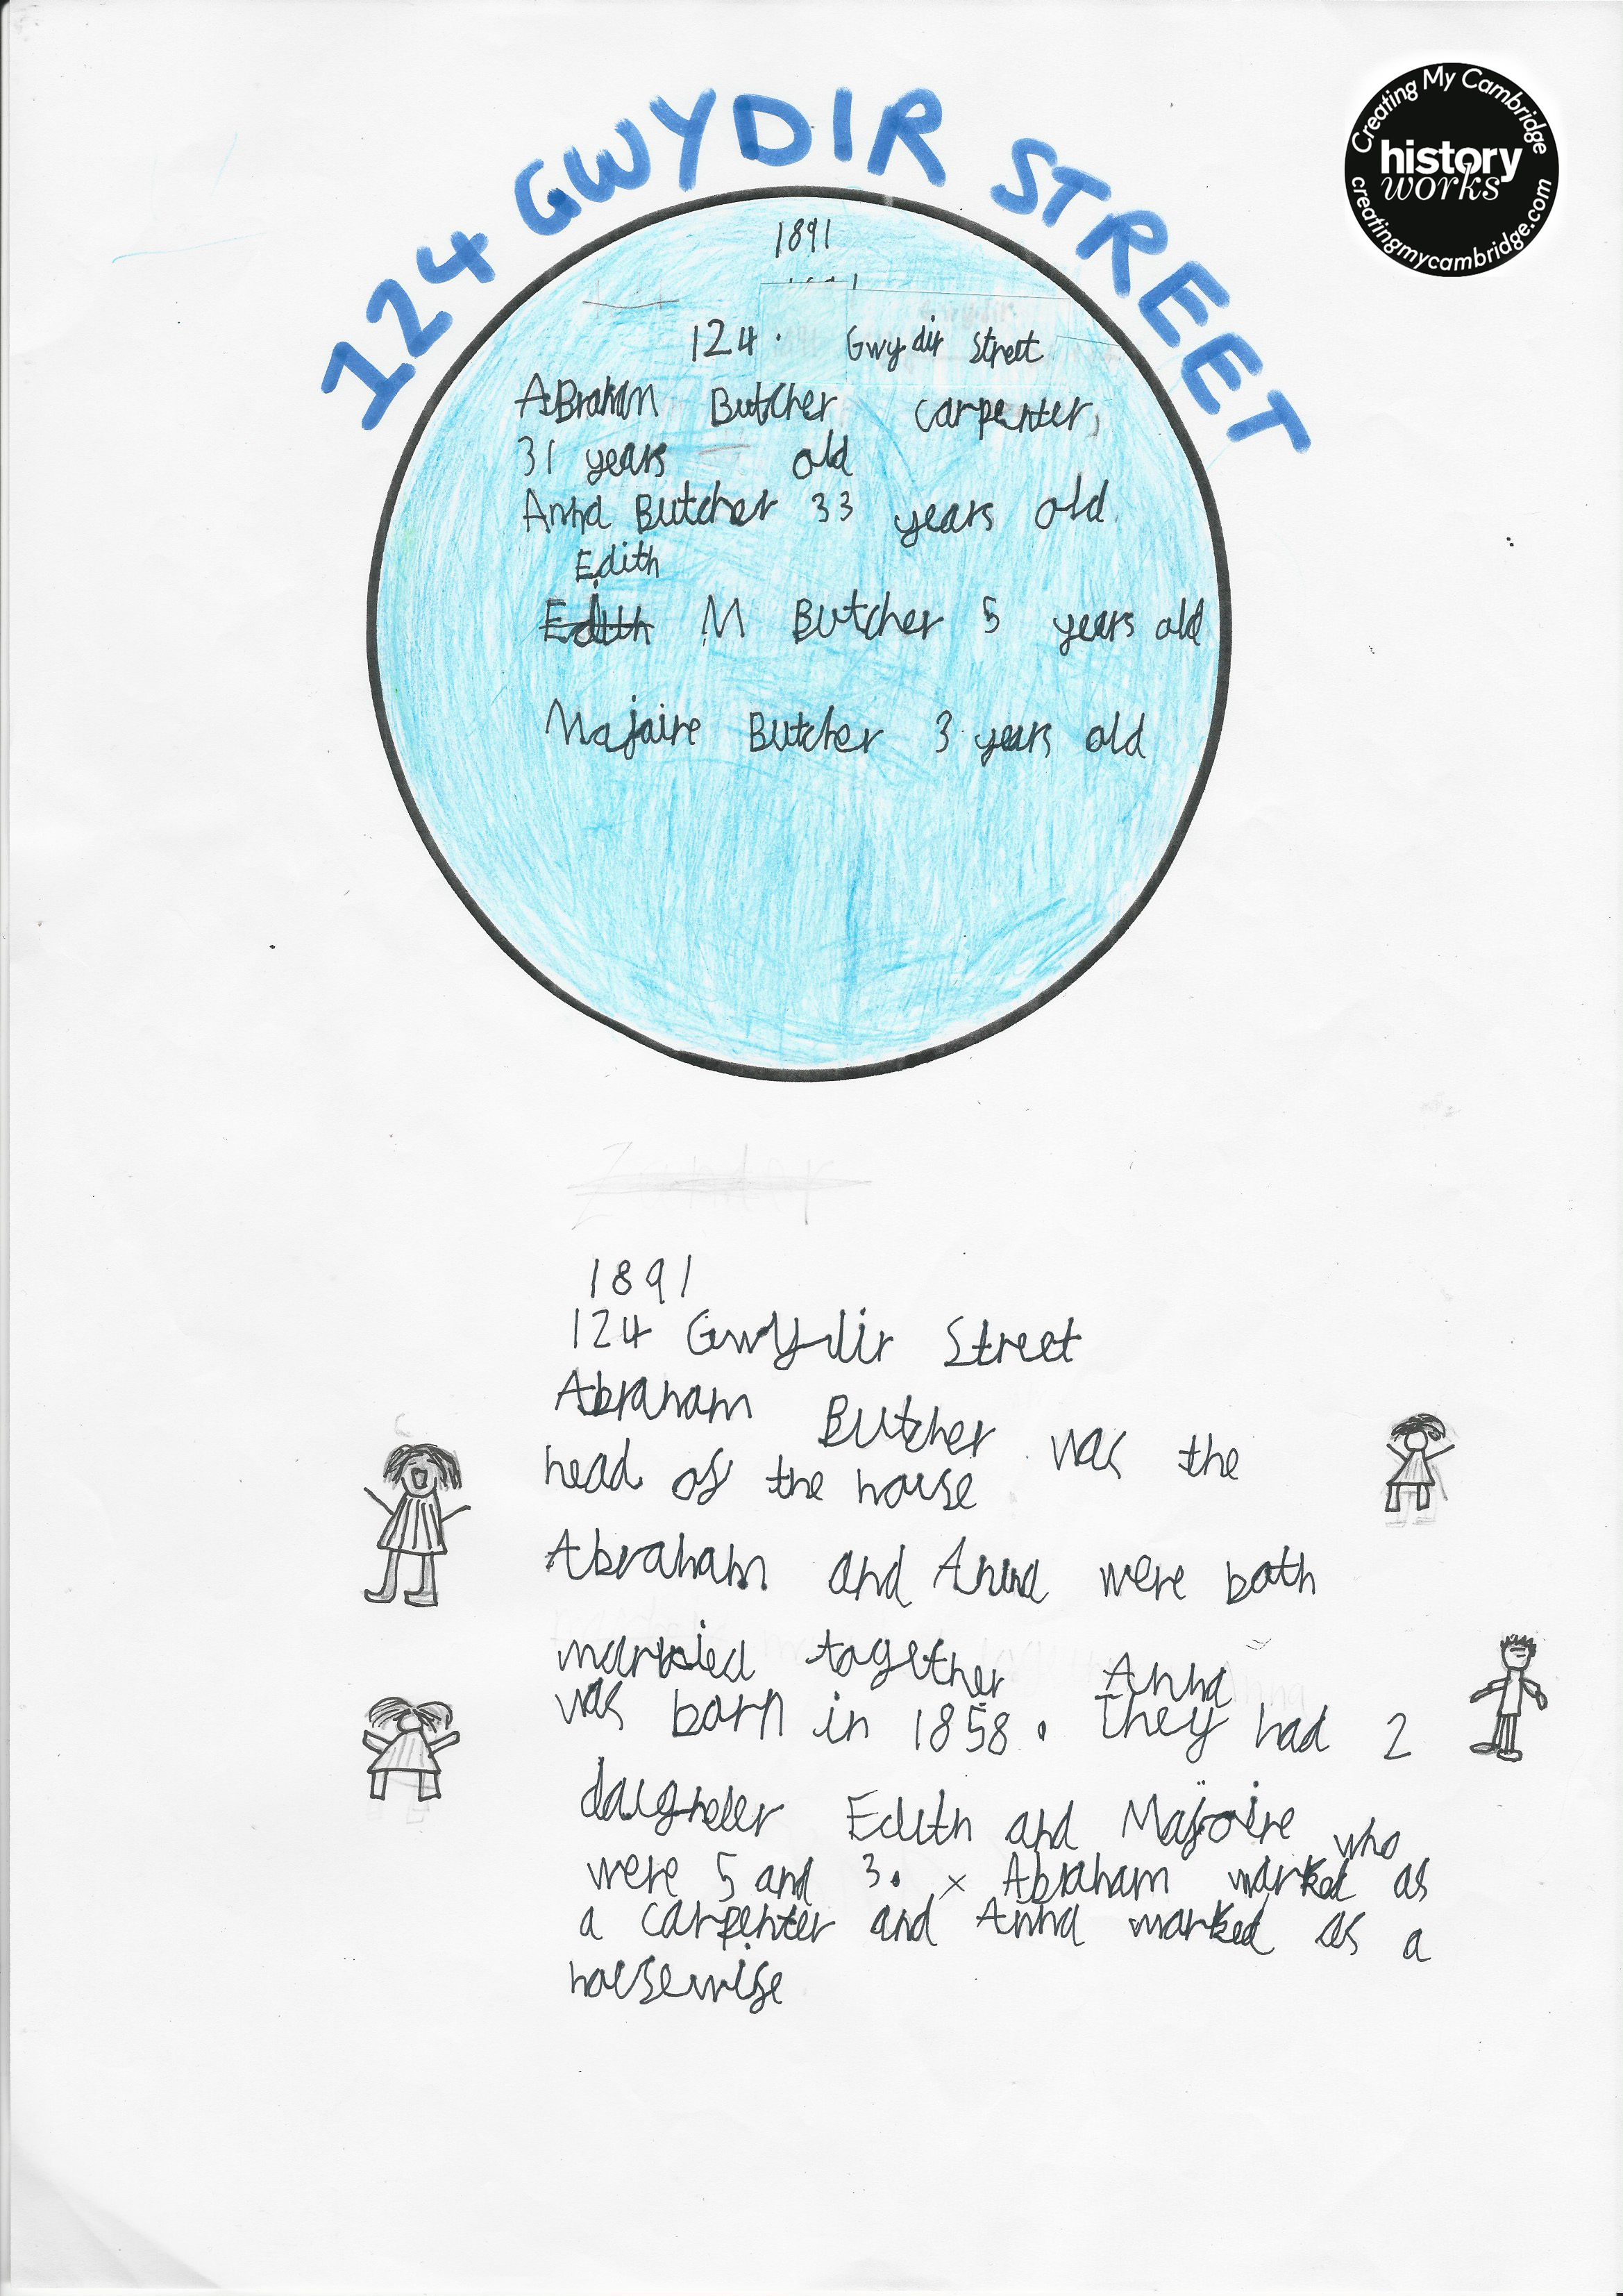 124 GWYDIR STREET
Creating My Cambridge
history
works
creatingmycambridge.com
1891
124. Gwydir Street
ABraham Butcher carpenter,
31 years old
Anna Butcher 33 years old.
Edith
Edith M Butcher 5 years old
Majaire Butcher 3 years old
1891
124 Gwydir Street
Abraham Butcher was the
head of the house
Abraham and Anna were both
married together Anna
was born in 1858. They had 2
Edith and Majoire who
were 5 and 3. x Abraham worked as
a carpenter and Anna worked as a
housewife